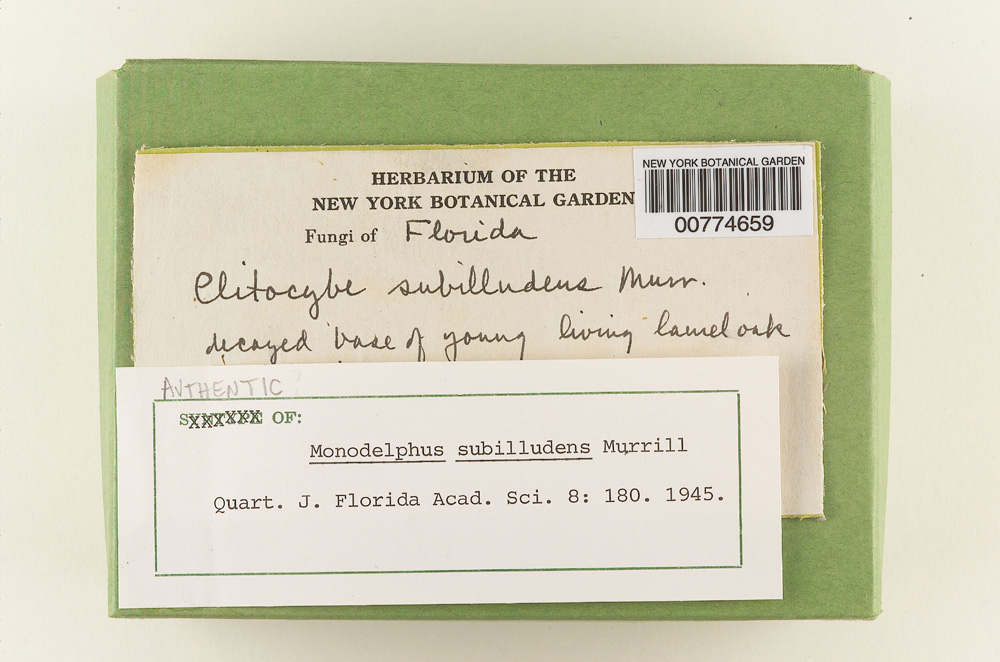 HERBARIUM OF THE
NEW YORK BOTANICAL GARDEN
NEW YORK BOTANICAL GARDEN
00774659
Fungi of Florida
Clitocybe subilludens Murr.
decayed base of young living laurel oak
AUTHENTIC
SYNTYPE OF:
Monodelphus subilludens Murrill
Quart. J. Florida Acad. Sci. 8: 180. 1945.